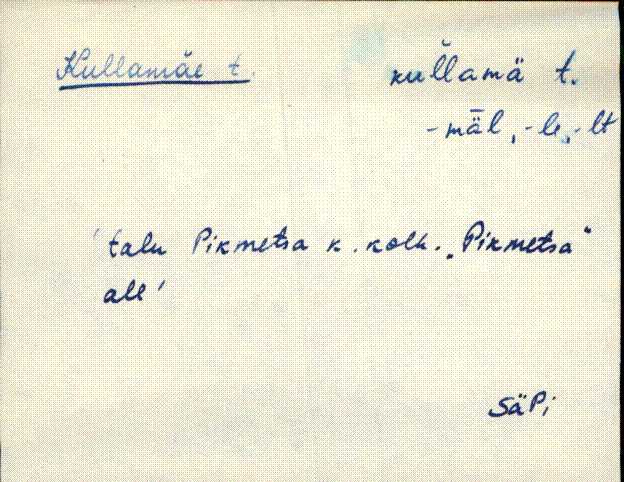 Kullamäe t.
kul̆lamä t.
-mäl, -le, -lt
'talu Pikmetsa k. kolh. „Pikmetsa"
all'
SäPi